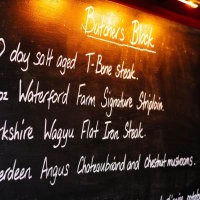 Butchers Block
day salt aged T-Bone steak.
oz Waterford Farm Signature Striploin.
rkshire Wagyu Flat Iron Steak.
erdeen Angus Chateaubriand and chestnut mushrooms.